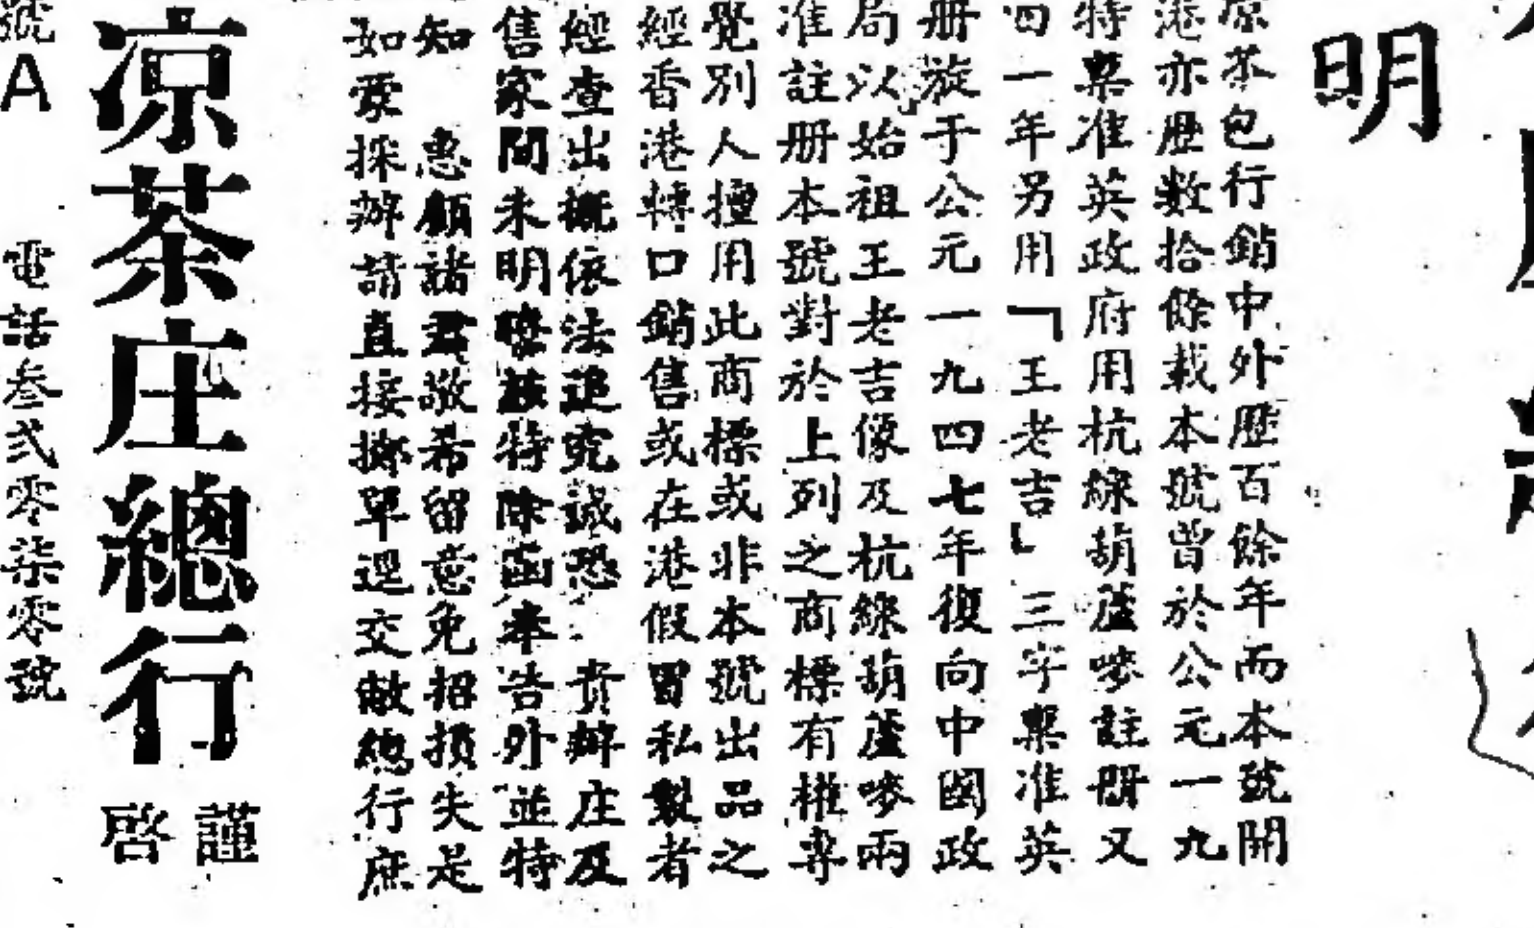 明
凉茶包行銷中外歷百餘年而本號開
港亦歷數拾餘載本號曾於公元一九
特稟准英政府用杭線葫蘆嘜註冊又
一年另用「王老吉」三字稟准英
册旋于公元一九四七年復向中國政
局以始祖王老吉像及杭線葫蘆嘜兩
准註册本號對於上列之商標有權專
覺別人擅用此商標或非本號出品之
經香港轉口銷售或在港假冒私製者
經查出概依法追究誠恐 貴辦庄及
售家間未明瞭故特除函奉告外並特
知 惠顧諸君敬希留意免招損失是
如蒙採辦請直接擲單逕交敝總行庶
凉茶庄總行
謹啓
號A 電話叁弍零柒零號